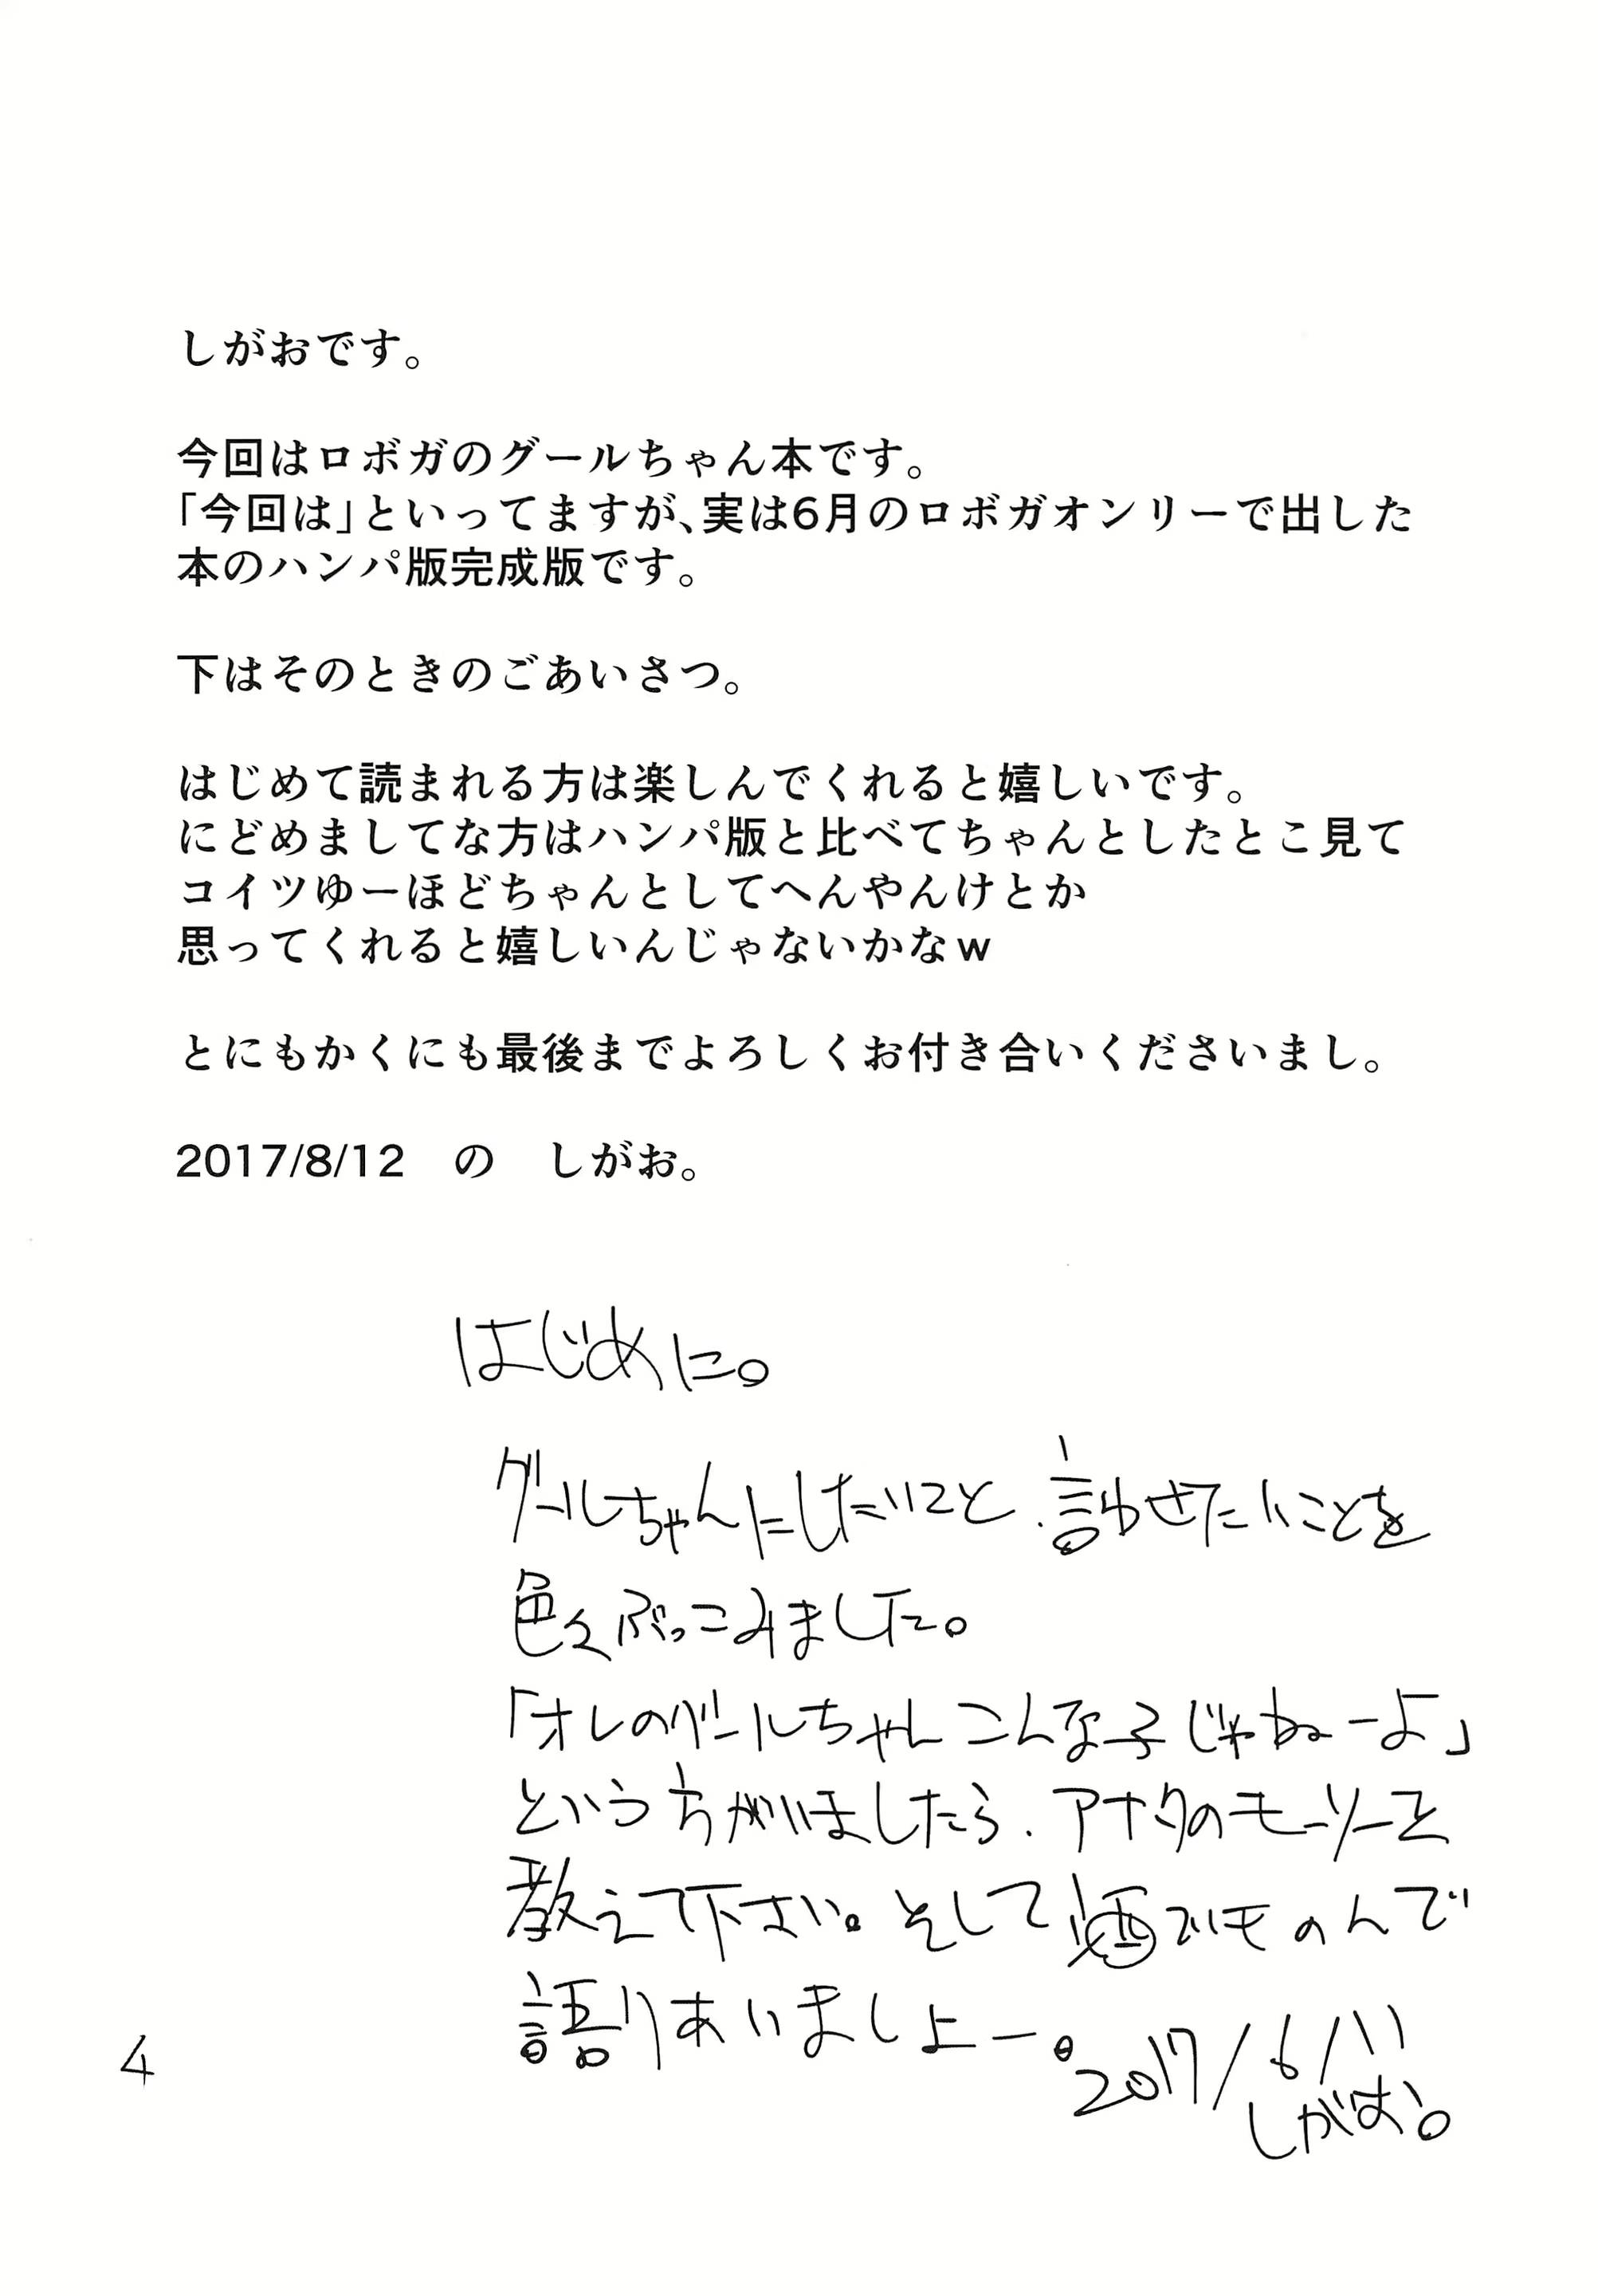 しがおです。
今回はロボガのグールちゃん本です。
「今回は」といってますが、実は6月のロボガオンリーで出した
本のハンパ版完成版です。
下はそのときのごあいさつ。
はじめて読まれる方は楽しんでくれると嬉しいです。
にどめましてな方はハンパ版と比べてちゃんとしたとこ見て
コイツゆーほどちゃんとしてへんやんけとか
思ってくれると嬉しいんじゃないかなw
とにもかくにも最後までよろしくお付き合いくださいまし。
2017/8/12　の　しがお。
はじめに。
グールちゃんにしたいこと、言わせたいことを
色々ぶっこみました。
「オレのグールちゃんこんな子じゃねーよ」
という方がいましたら、アナタのモーソーを
教えて下さい。そして酒でものんで
語りあいましょー。
2017/6/11
しがお。
4